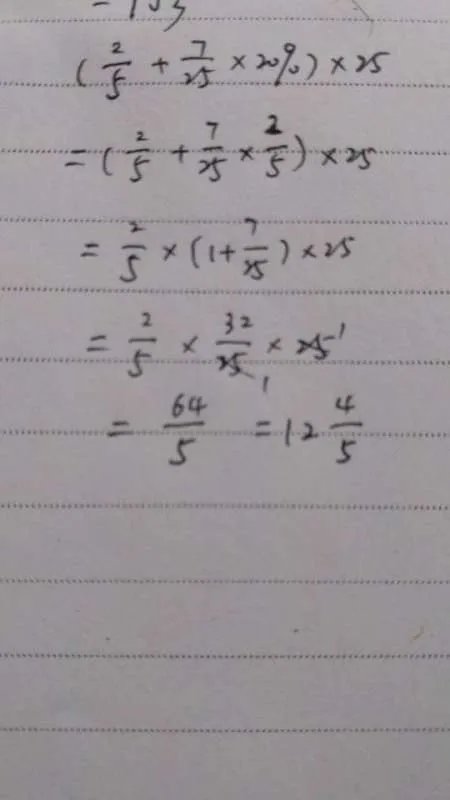 (2/5 + 7/25 × 20%) × 25
= (2/5 + 7/25 × 2/5) × 25
= 2/5 × (1 + 7/25) × 25
= 2/5 × 32/25 1 × 25 1
= 64/5 = 12 4/5